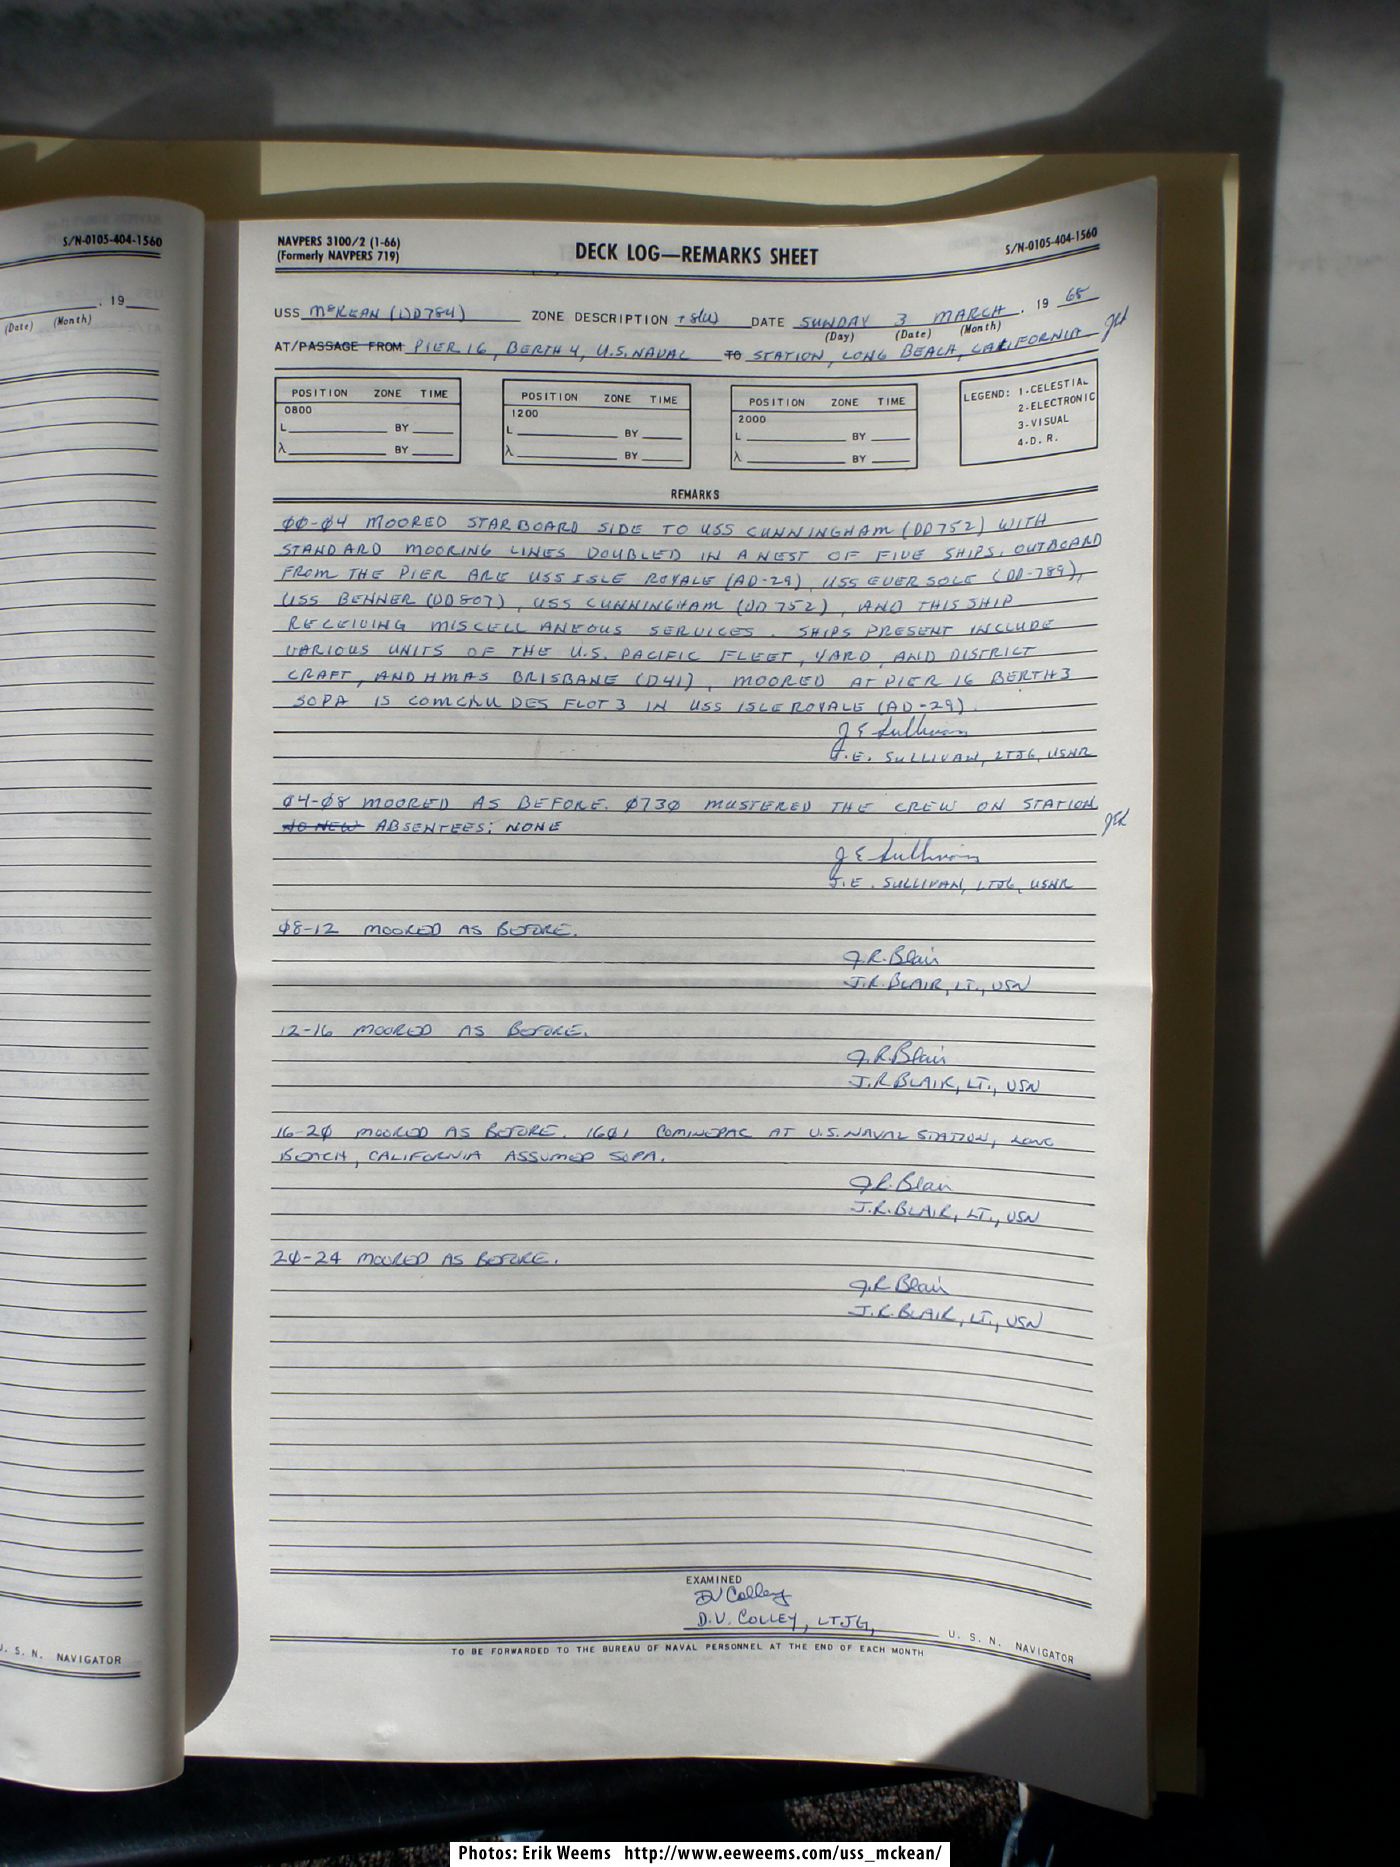 S/N-0105-404-1560
, 19
(Date) (Month)
U. S. N. NAVIGATOR
NAVPERS 3100/2 (1-66)
(Formerly NAVPERS 719)
DECK LOG—REMARKS SHEET
S/N-0105-404-1560
USS McKEAN (DD784) ZONE DESCRIPTION +8(U) DATE SUNDAY 3 MARCH, 19 68
(Day) (Date) (Month)
AT/PASSAGE FROM PIER 16, BERTH 4, U.S. NAVAL TO STATION, LONG BEACH, CALIFORNIA
POSITION ZONE TIME
0800
L BY
λ BY
POSITION ZONE TIME
1200
L BY
λ BY
POSITION ZONE TIME
2000
L BY
λ BY
LEGEND: 1-CELESTIAL
2-ELECTRONIC
3-VISUAL
4-D. R.
REMARKS
00-04 MOORED STARBOARD SIDE TO USS CUNNINGHAM (DD752) WITH
STANDARD MOORING LINES DOUBLED IN A NEST OF FIVE SHIPS. OUTBOARD
FROM THE PIER ARE USS ISLE ROYALE (AD-29), USS EVERSOLE (DD-789),
USS BENNER (DD807), USS CUNNINGHAM (DD 752), AND THIS SHIP
RECEIVING MISCELLANEOUS SERVICES. SHIPS PRESENT INCLUDE
VARIOUS UNITS OF THE U.S. PACIFIC FLEET, YARD AND DISTRICT
CRAFT, AND HMAS BRISBANE (D41), MOORED AT PIER 16 BERTH 3
SOPA IS COMCRU DES FLOT 3 IN USS ISLE ROYALE (AD-29).
J E Sullivan
J.E. SULLIVAN, LTJG, USNR
04-08 MOORED AS BEFORE. 0730 MUSTERED THE CREW ON STATION
NO NEW ABSENTEES: NONE
J E Sullivan
J.E. SULLIVAN, LTJG, USNR
08-12 MOORED AS BEFORE.
J.R. Blair
J.R. BLAIR, LT., USN
12-16 MOORED AS BEFORE.
J.R. Blair
J.R. BLAIR, LT., USN
16-20 MOORED AS BEFORE. 1601 COMINEPAC AT U.S. NAVAL STATION, LONG
BEACH, CALIFORNIA ASSUMED SOPA.
J.R. Blair
J.R. BLAIR, LT., USN
20-24 MOORED AS BEFORE.
J.R. Blair
J.R. BLAIR, LT., USN
EXAMINED
DV Colley
D.V. COLLEY, LTJG, U. S. N. NAVIGATOR
TO BE FORWARDED TO THE BUREAU OF NAVAL PERSONNEL AT THE END OF EACH MONTH
Photos: Erik Weems http://www.eeweems.com/uss_mckean/